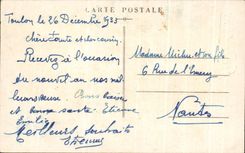 CARTE POSTALE
Toulon, le 26 Décembre 1933
Chère tante et cher cousin,
Recevez à l'occasion
du nouvel an nos meil
leurs vœux. Bonne
et bonne santé. Etienne
Emilie
Meilleurs souhaits
Etienne
Madame et son fils
6 Rue de l'Emery
Nantes